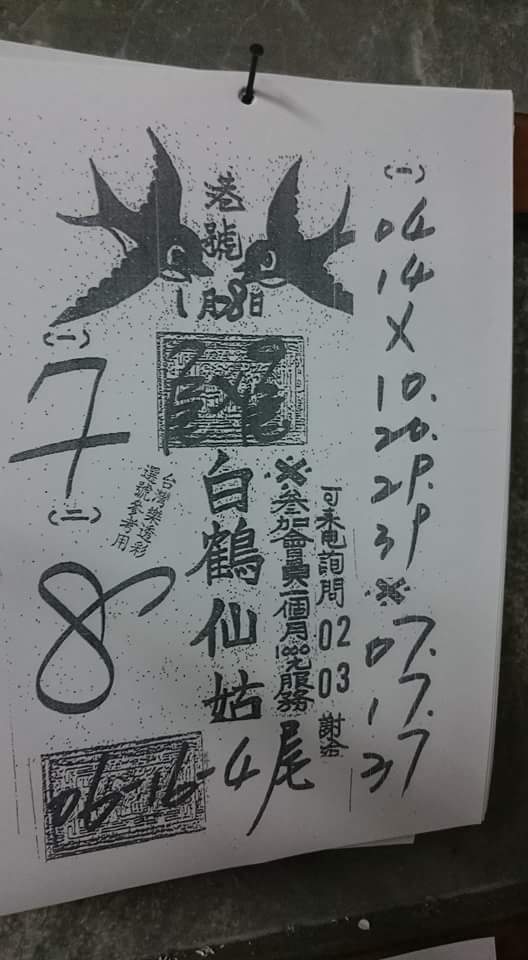 港號
1月28日
(一)
7
(二)
8
台灣樂透彩
選號參考用
白鶴仙姑
※參加會員一個月1000元服務
可來電詢問 02 03 謝洽
06-16-4尾
(一)
04
14
X
10.
20.
29.
39
※
07.
17.
37